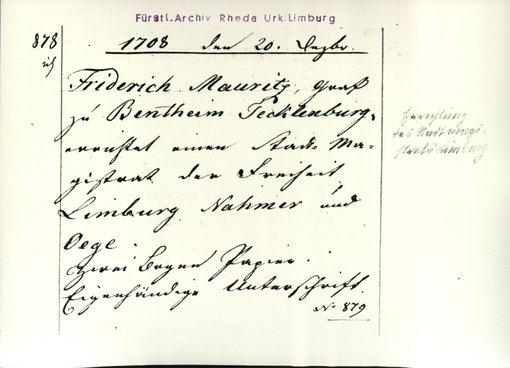 Fürstl. Archiv Rheda Urk. Limburg
878
1708 den 20. Dezbr.
Friderich Mauritz, Graf
zu Bentheim Tecklenburg,
errichtet einen Stadt Ma-
gistrat der Freiheit
Limburg Nahmer und
Oege.
zwei Bogen Papier.
Eigenhändige Unterschrift.
N. 879
Errichtung
des Stadtmagi-
strats Limburg